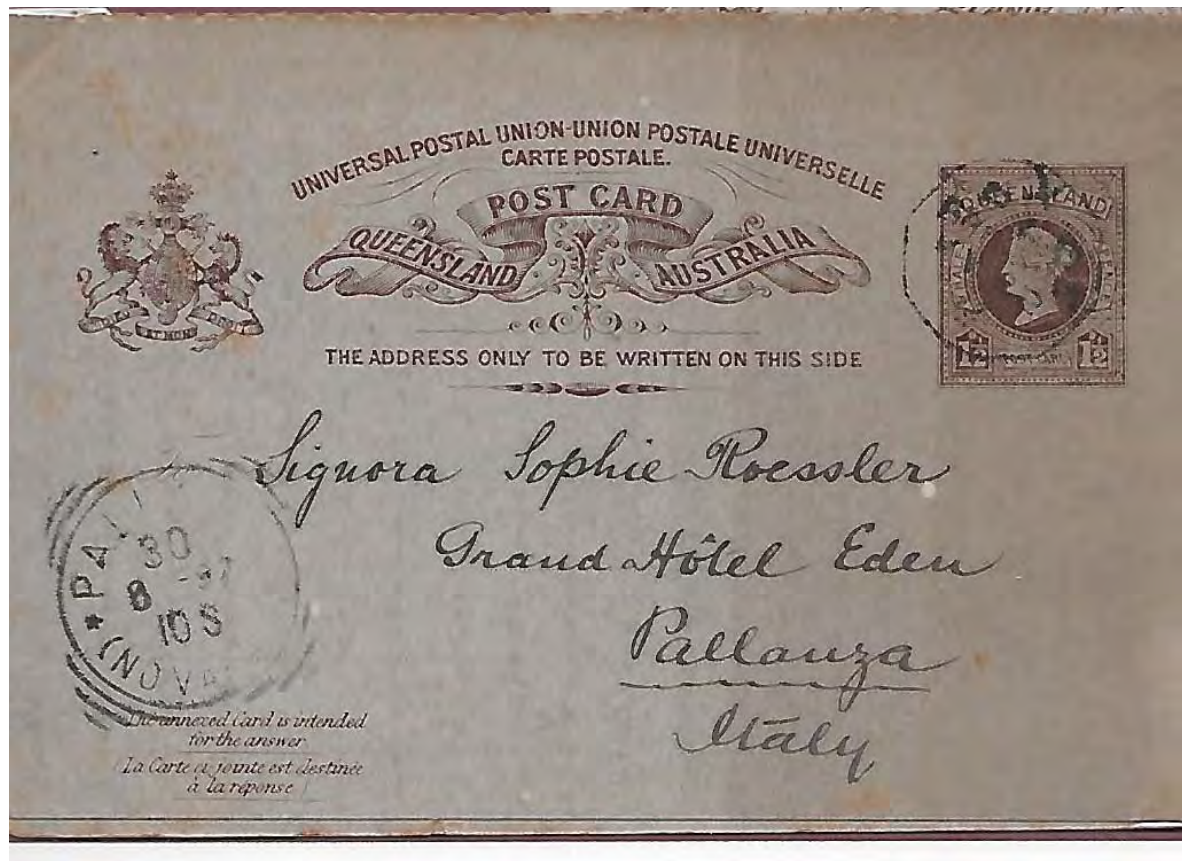 UNIVERSAL POSTAL UNION-UNION POSTALE UNIVERSELLE
CARTE POSTALE.
POST CARD
QUEENSLAND AUSTRALIA
THE ADDRESS ONLY TO BE WRITTEN ON THIS SIDE
QUEENSLAND
1½ POST CARD 1½
Signora Sophie Roessler
Grand Hôtel Eden
Pallanza
Italy
30
8
10 S
The annexed Card is intended
for the answer
La Carte ci jointe est destinée
à la réponse